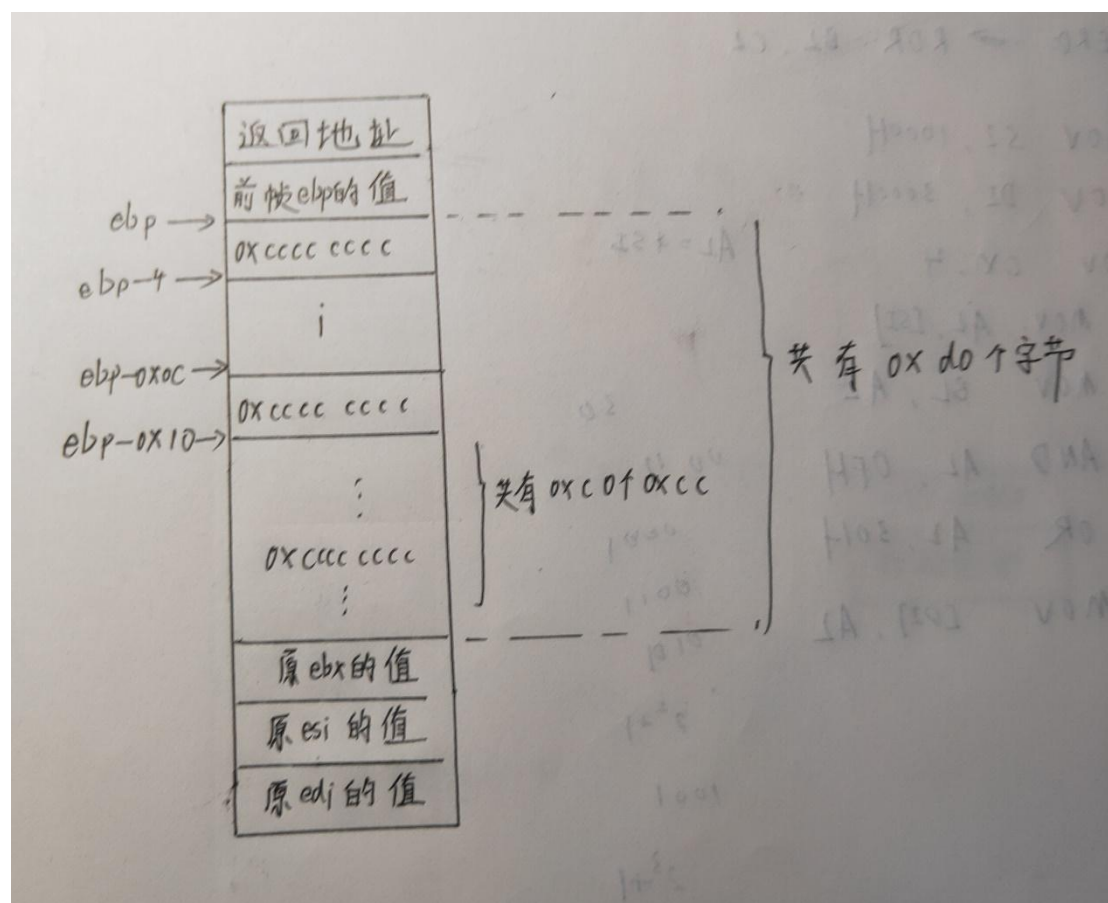 返回地址
前帧ebp的值
ebp→
0xcccc cccc
ebp-4→
i
ebp-0x0c→
0xcccc cccc
ebp-0x10→
⋮
共有0xc0个0xcc
0xcccc cccc
⋮
共有0xd0个字节
原ebx的值
原esi的值
原edi的值